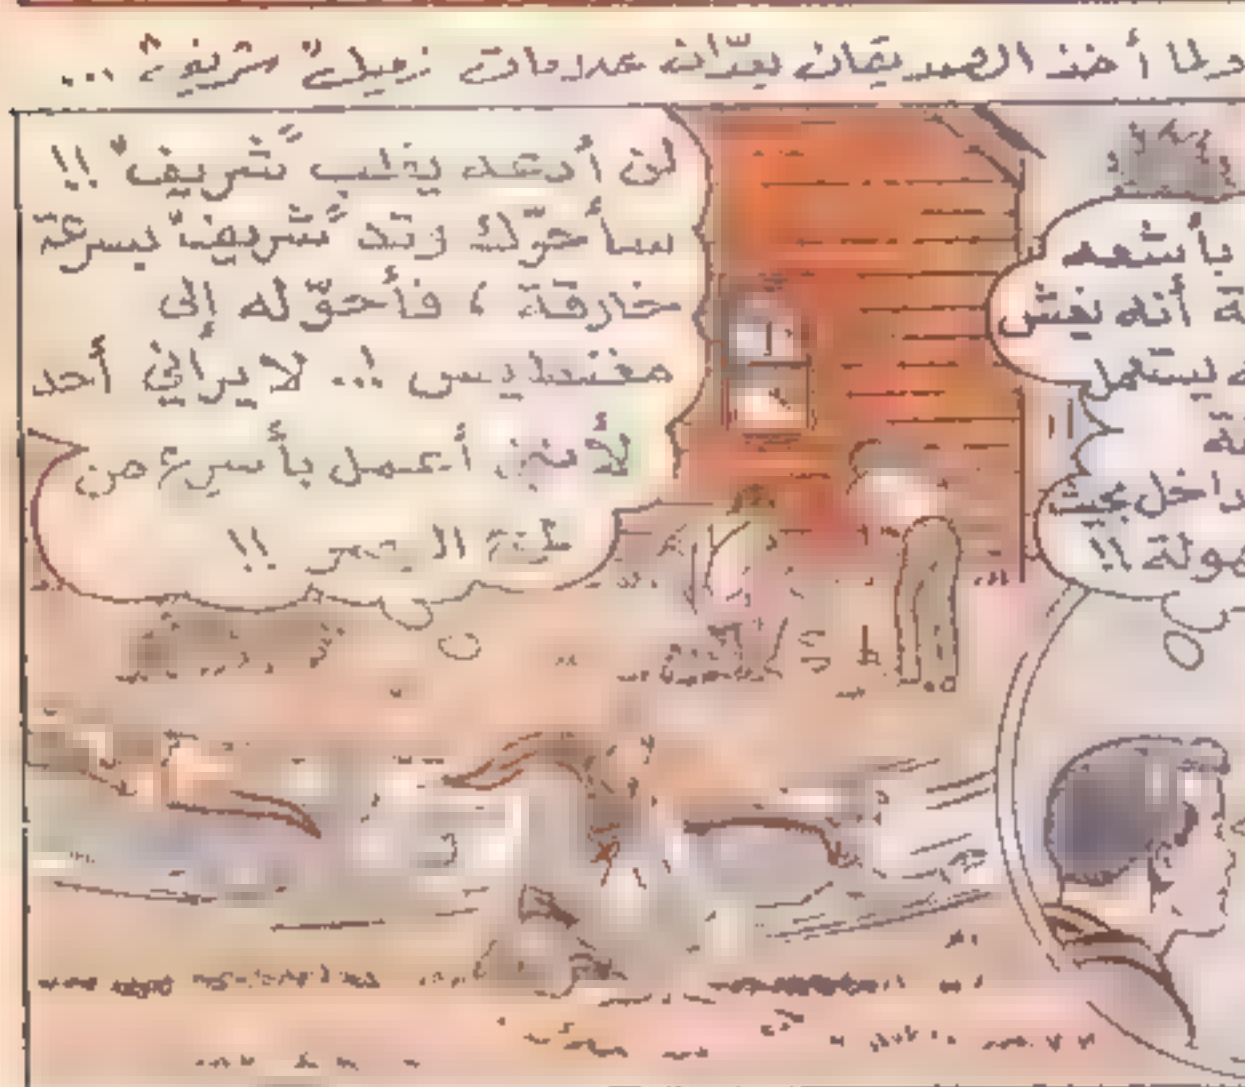 ولما أخذ الصديقان يعدّان علامات زميل شريف ...
لن أدعه يغلب "شريف" !!
سأحرّك وتد "شريف" بسرعة
خارقة ، فأحوّله إلى
مغنطيس !.. لا يراني أحد
لأنني أعمل بأسرع من
البصر !!
بأشعه
أنه نفش
يستعمل
داخل بحيث